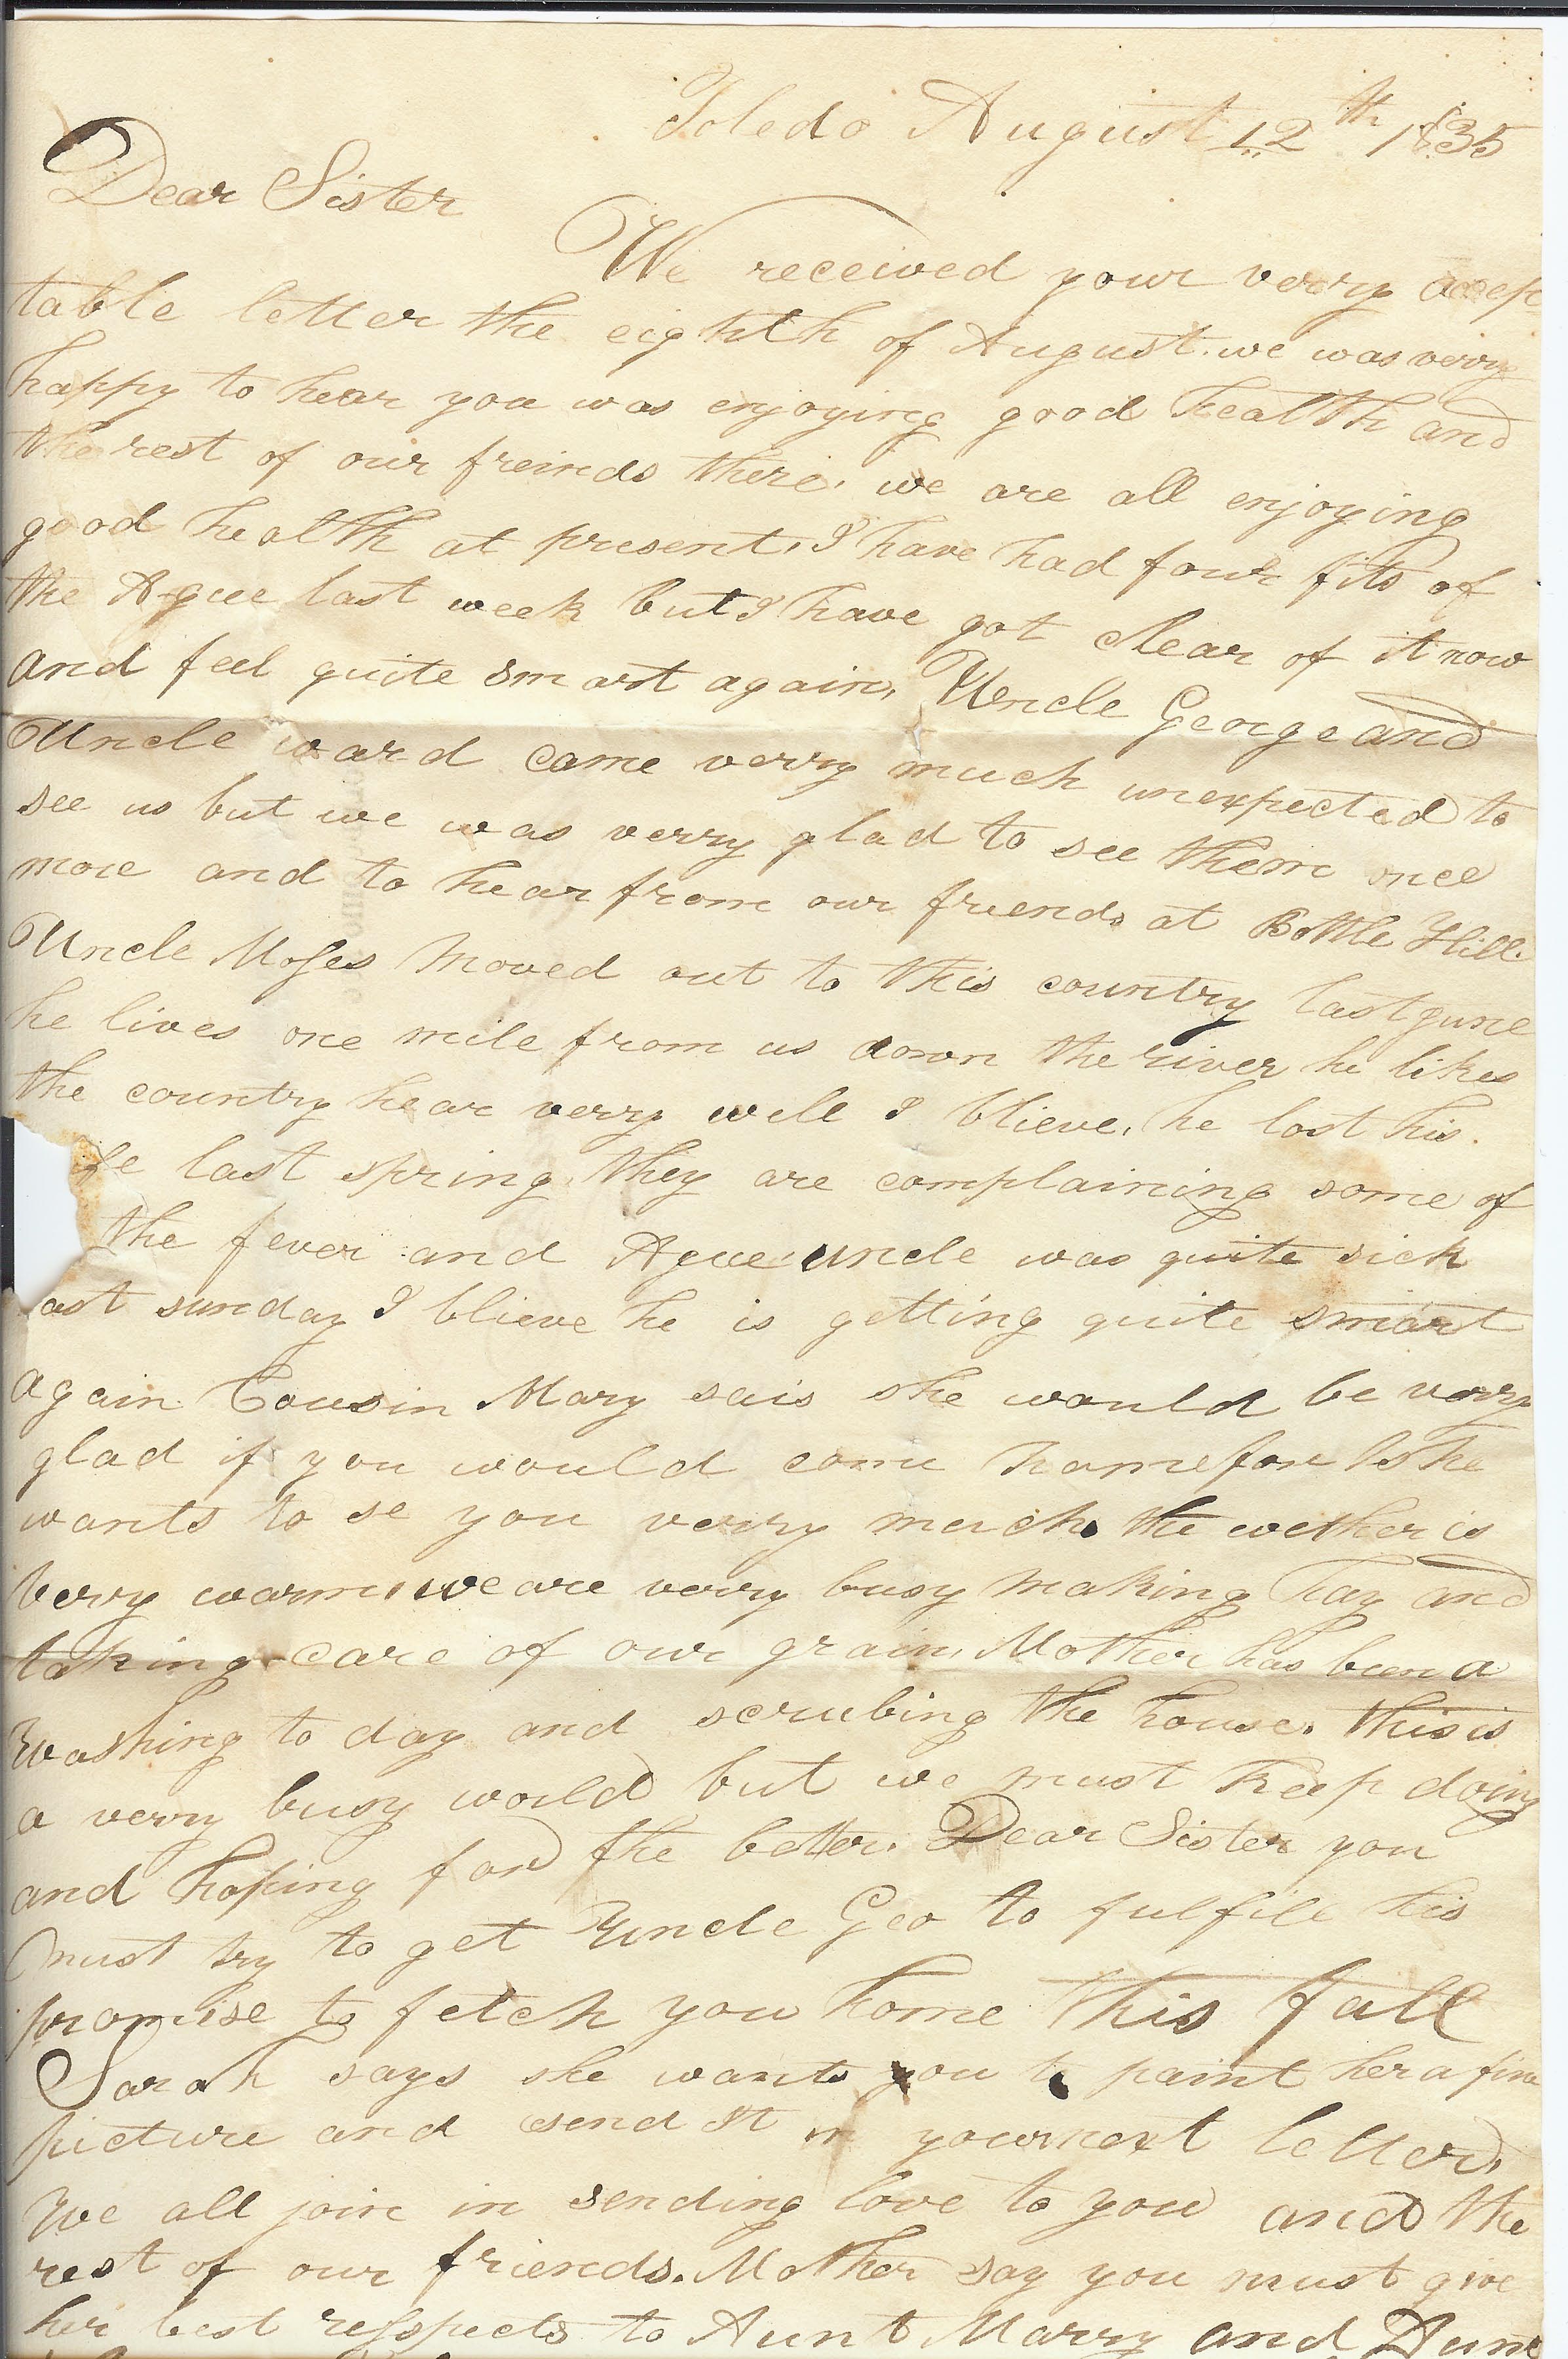 Toledo August 12th 1835
Dear Sister
We received your verry accep
table letter the eighth of August. we was verry
happy to hear you was enjoying good health and
the rest of our freinds there. we are all enjoying
good health at present. I have had four fits of
the Ague last week but I have got clear of it now
and feel quite smart again, Uncle George and
Uncle ward came verry much unexpected to
see us but we was verry glad to see them once
more and to hear from our friends at Bottle Hill.
Uncle Moses moved out to this country last june
he lives one mile from us down the river he likes
the country hear verry well I blieve, he lost his
fe last spring, they are complaining some of
the fever and Ague. uncle was quite sick
ast sunday I blieve he is getting quite smart
again. Cousin Mary sais she would be verry
glad if you would come home for she
wants to se you verry much. the wether is
verry warm, we are verry busy making hay and
taking care of our grain, Mother has been a
washing to day and scrubing the house. this is
a verry busy world but we must keep doing
and hoping for the better. Dear Sister you
must try to get Uncle Geo to fulfill his
promise to fetch you home this fall
Sarah says she wants you to paint her a fine
picture and send it in your next letter.
We all join in sending love to you and the
rest of our friends. Mother say you must give
her best respects to Aunt Marry and Aunt